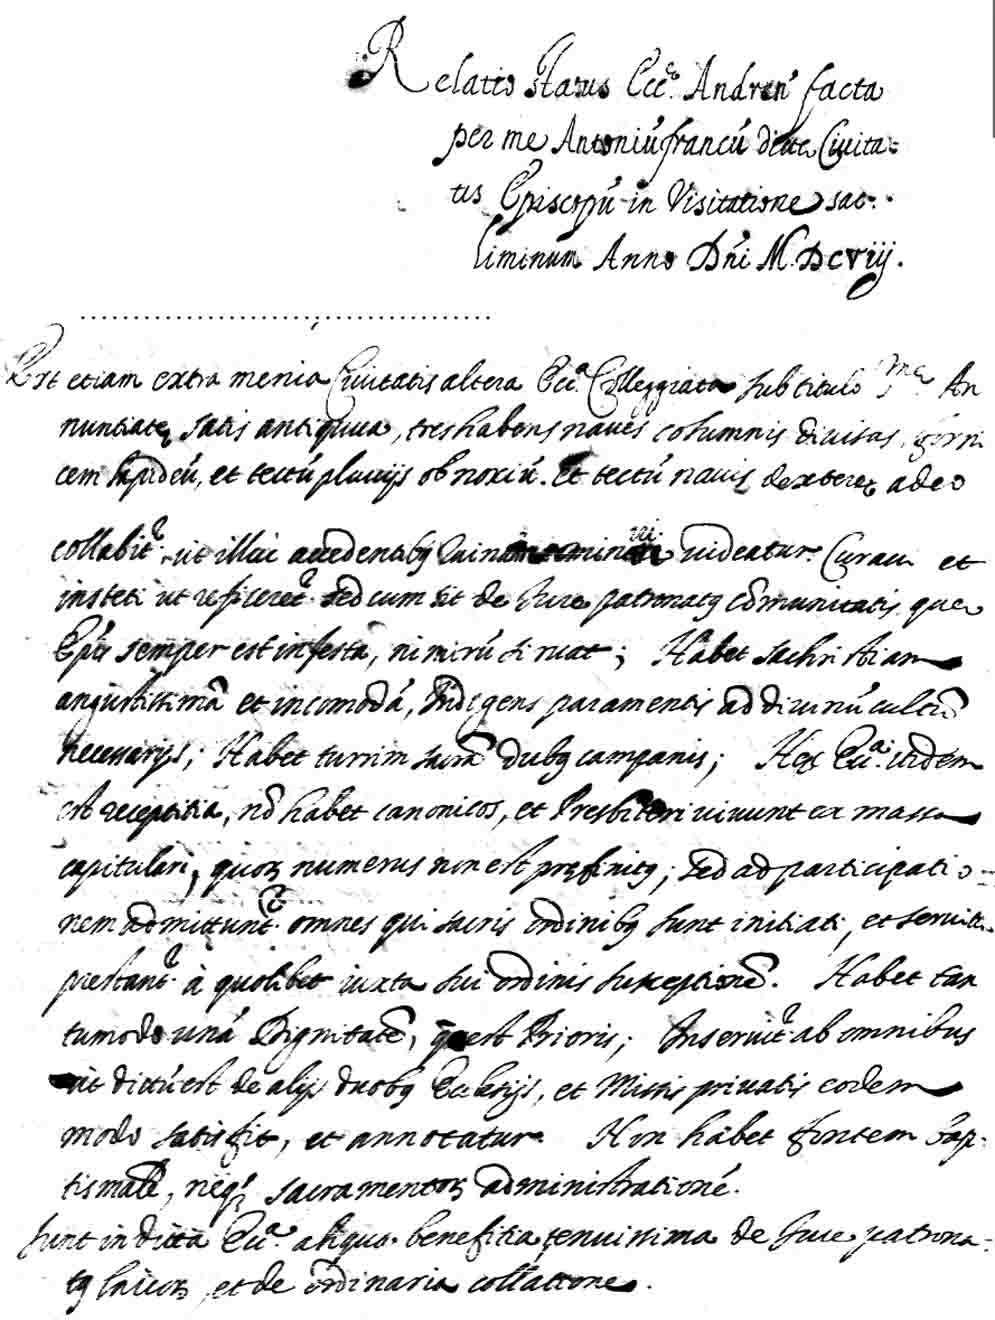 Relatio status Ecc.ᵉ Andren' facta
per me Antoniũ francũ dictæ Ciuita-
tis Episcopũ in Visitatione sac.
liminum Anno Dñi M.DCViij.
Est etiam extra menia Ciuitatis altera Ecc.ᵃ Colleggiata sub titulo An
nuntiatę satis antiqua, tres habens naues columnis diuisas, forni
cem lapideũ, et tectũ pluuijs obnoxiũ. Et tectũ nauis dexterę adeo
collabit.ʳ ut illuc accedentibꝰ ruinã minari uideatur. Curaui et
insteti ut reficeret.ʳ sed cum sit de Iure patronatꝰ Cõmunitatis que
Ep̃is semper est infesta, nimirũ si ruat; Habet sachristiam
angustissimã et incomodã, Indigens paramentis ad diuinũ cultũ
necessarijs; Habet turrim sacrã duabꝰ campanis; Hęc Ecc.ᵃ itidem
est receptitia, nõ habet canonicos, et Presbiteri uiuunt ex massa
capitulari, quorꝝ numerus non est pręfinitꝰ; sed ad participatio-
nem admittunt.ʳ omnes qui sacris ordinibꝰ sunt initiati, et seruitiũ
prestant.ʳ à quolibet iuxta sui ordinis susceptionẽ. Habet tan
tumodo unã Dignitatẽ, quę est Prioris; Inseruit.ʳ ab omnibus
ut dictũ est de alijs duobꝰ Ecclesijs, et Missis priuatis eodem
modo satisfit, et annotatur. Non habet fontem bap-
tismalẽ, neqꝫ sacramentorꝝ administrationẽ.
Sunt in dicta Ecc.ᵃ aliqua benefitia tenuissima de Iure patrona-
tꝰ laicorꝝ, et de ordinaria collatione.